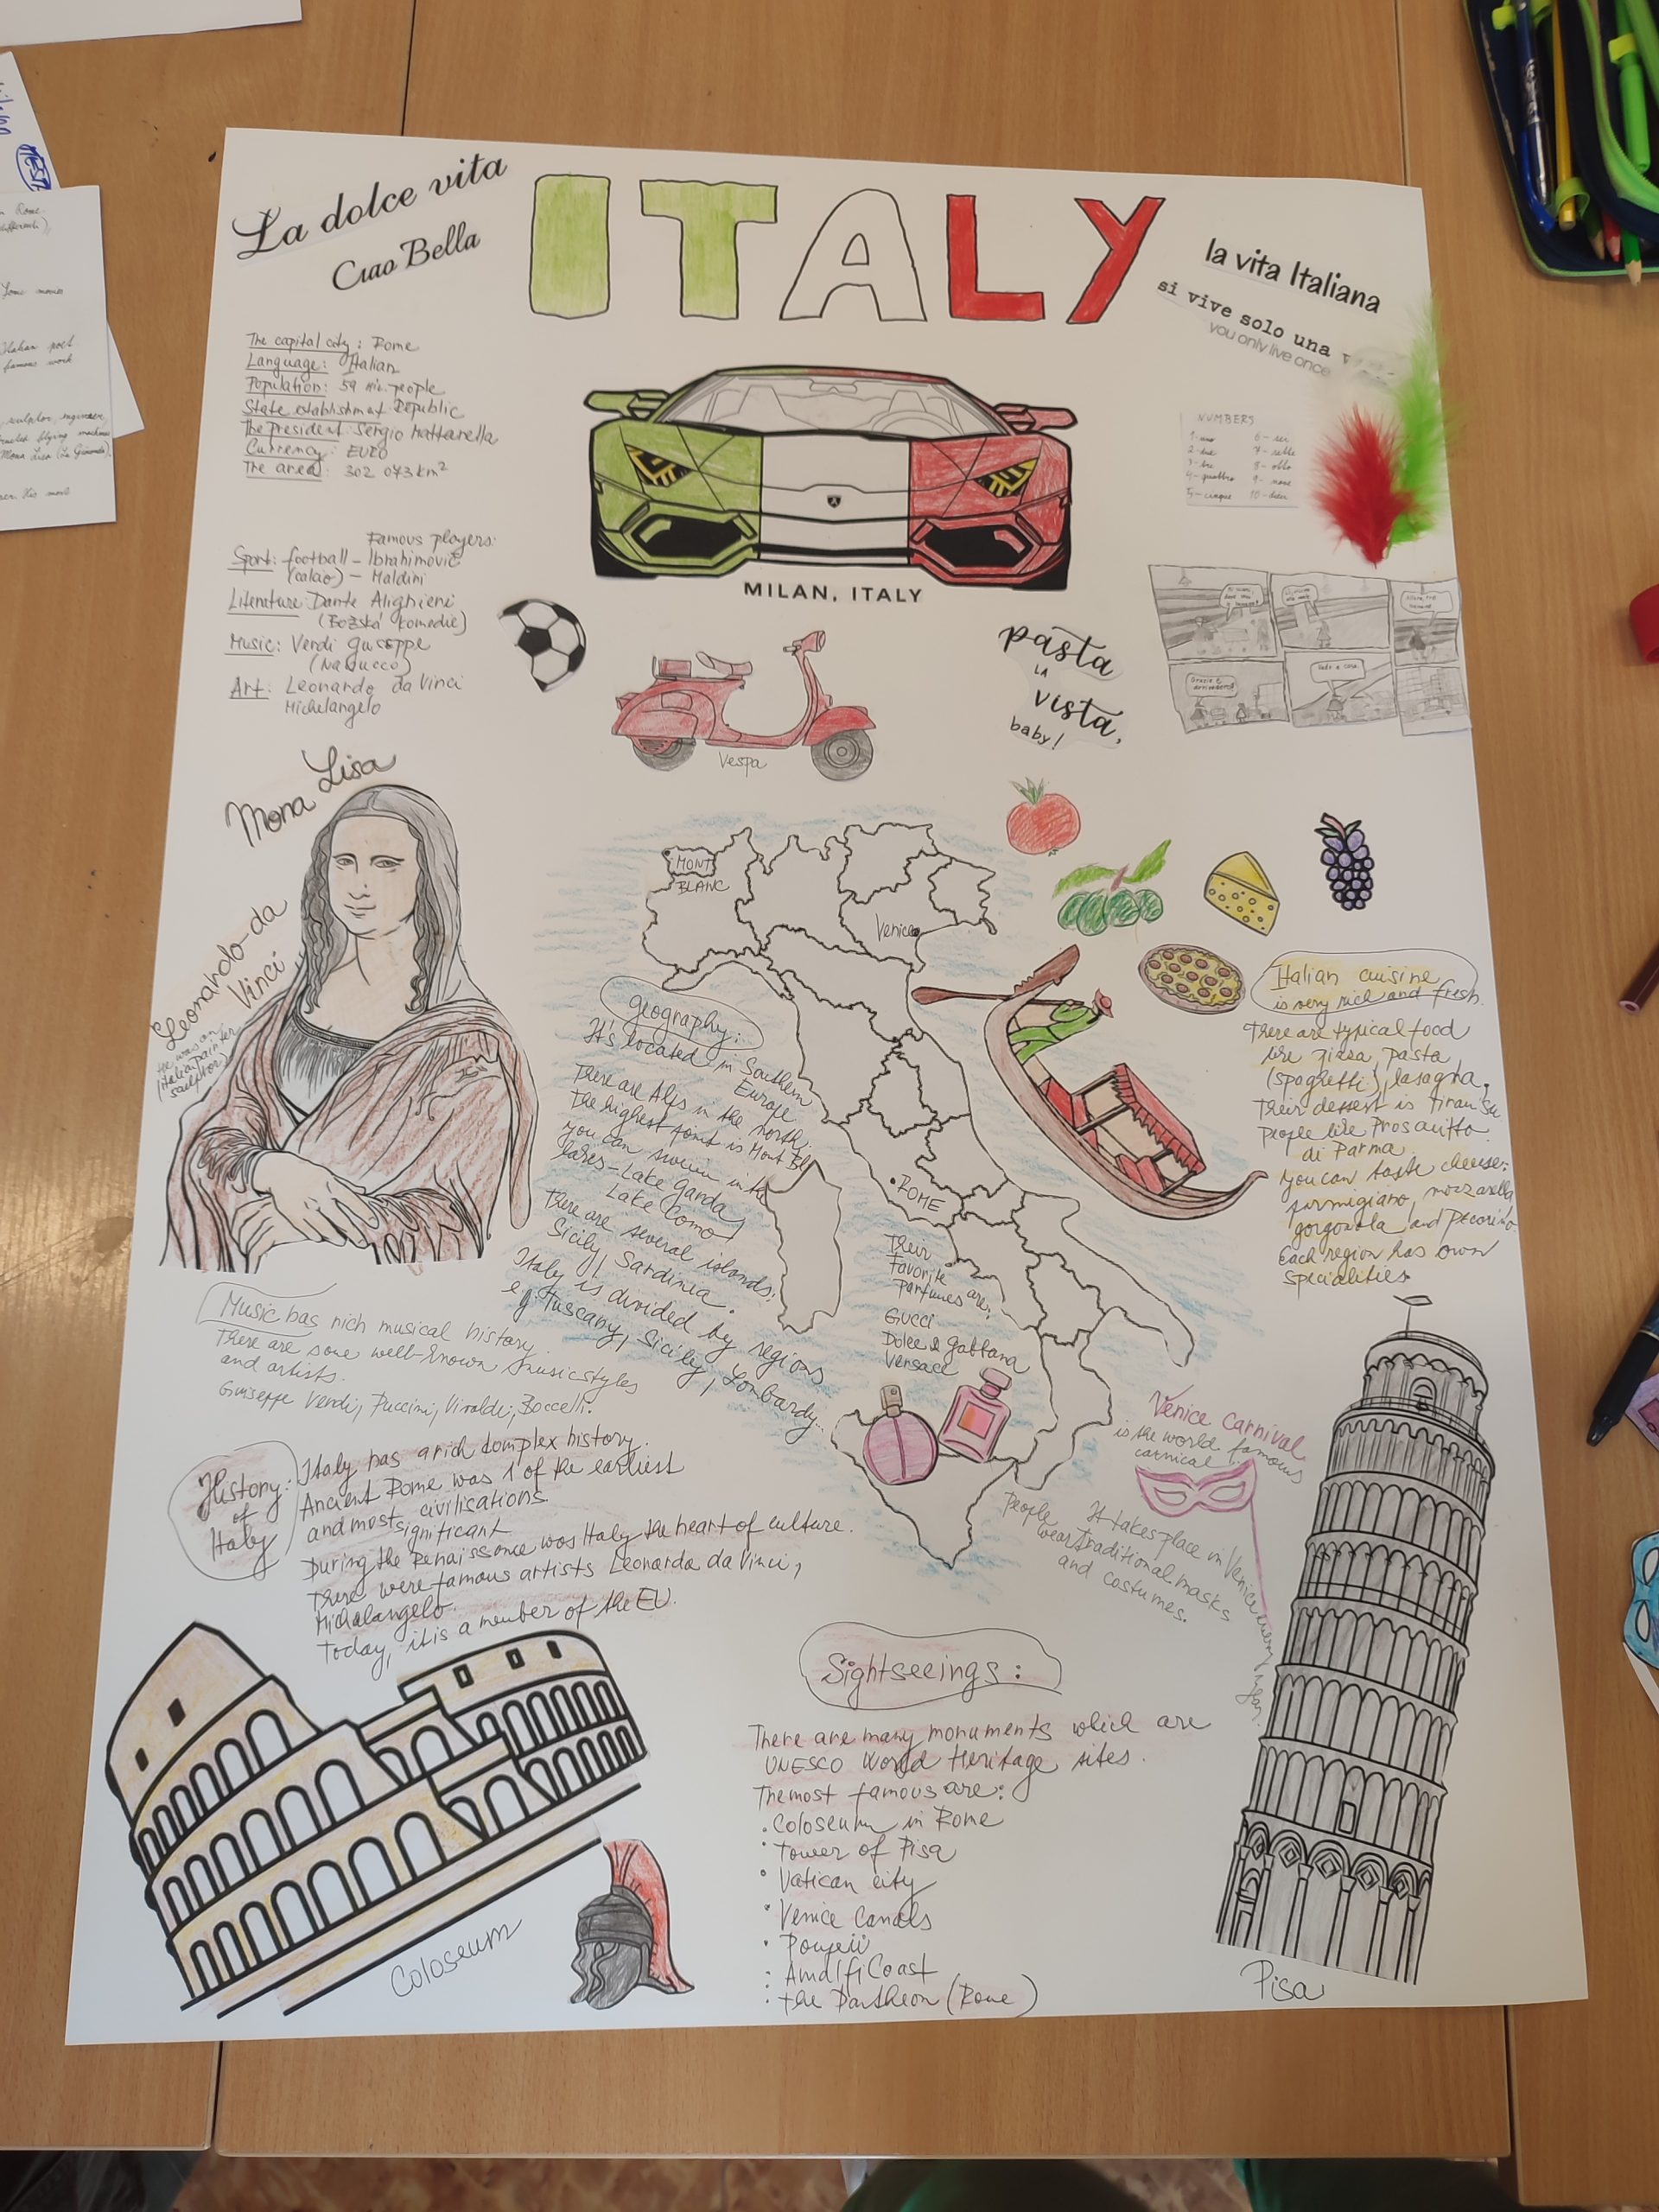 La dolce vita
Ciao Bella
ITALY
la vita Italiana
si vive solo una
you only live once
The capital city: Rome
Language: Italian
Population: 59 mil. people
State establishment Republic
The president: Sergio Mattarella
Currency: EURO
The area: 302 073 km²
NUMBERS
1-uno 6-sei
2-due 7-sette
3-tre 8-otto
4-quattro 9-nove
5-cinque 10-dieci
MILAN, ITALY
Famous players:
Sport: football - Ibrahimovič
(calcio) - Maldini
Literature: Dante Alighieri
(Božská komedie)
Music: Verdi Guseppe
(Nabucco)
Art: Leonardo da Vinci
Michelangelo
Vespa
pasta
LA
vista,
baby!
Grazie e
arrivederci!
Vado a casa.
Mona Lisa
Leonardo-da
Vinci
He was an
italian painter
sculptor)
MONT
BLANC
Venice
ROME
geography:
It's located in Southern
Europe
There are Alps in the north.
The highest point is Mont Bl
you can swim in the
lakes - Lake Garda,
Lake Como
There are several islands:
Sicily, Sardinia.
Italy is divided by regions
e.g. Tuscany, Sicily, Lombardy...
Italian cuisine
is very rich and fresh.
There are typical food
like pizza, pasta
(spaghetti), lasagna.
Their dessert is Tiramisu
People like Prosciutto
di Parma
you can taste cheese:
parmigiano, mozzarella
gorgonzola and pecorino
Each region has own
specialities.
Their
Favorite
Parfumes are:
GUCCI
Dolce & gabbana
Versace
Music has rich musical history.
There are some well-known music styles
and artists.
Giuseppe Verdi, Puccini, Vivaldi, Bocelli.
History
of
Italy
: Italy has a rich complex history.
Ancient Rome was 1 of the earliest
and most significant civilisations.
During the Renaissance was Italy the heart of culture.
There were famous artists Leonardo da Vinci,
Michalangelo.
Today, it is a member of the EU.
Venice Carnival
is the world famous
carnical
It takes place in Venice
People wear traditional masks
and costumes.
Sightseeings:
There are many monuments which are
UNESCO World Heritage sites.
The most famous are:
. Coloseum in Rome
• Tower of Pisa
• Vatican city
• Venice Canals
• Pompeii
: Amalfi Coast
: the Pantheon (Rome)
Coloseum
Pisa